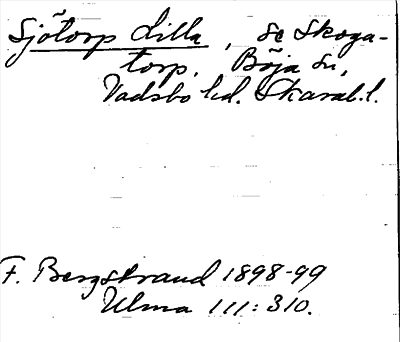 Sjötorp Lilla, se Skoga-
torp. Böja sn,
Vadsbo hd. Skarab.l.
F. Bergstrand 1898-99
Ulma 111:310.